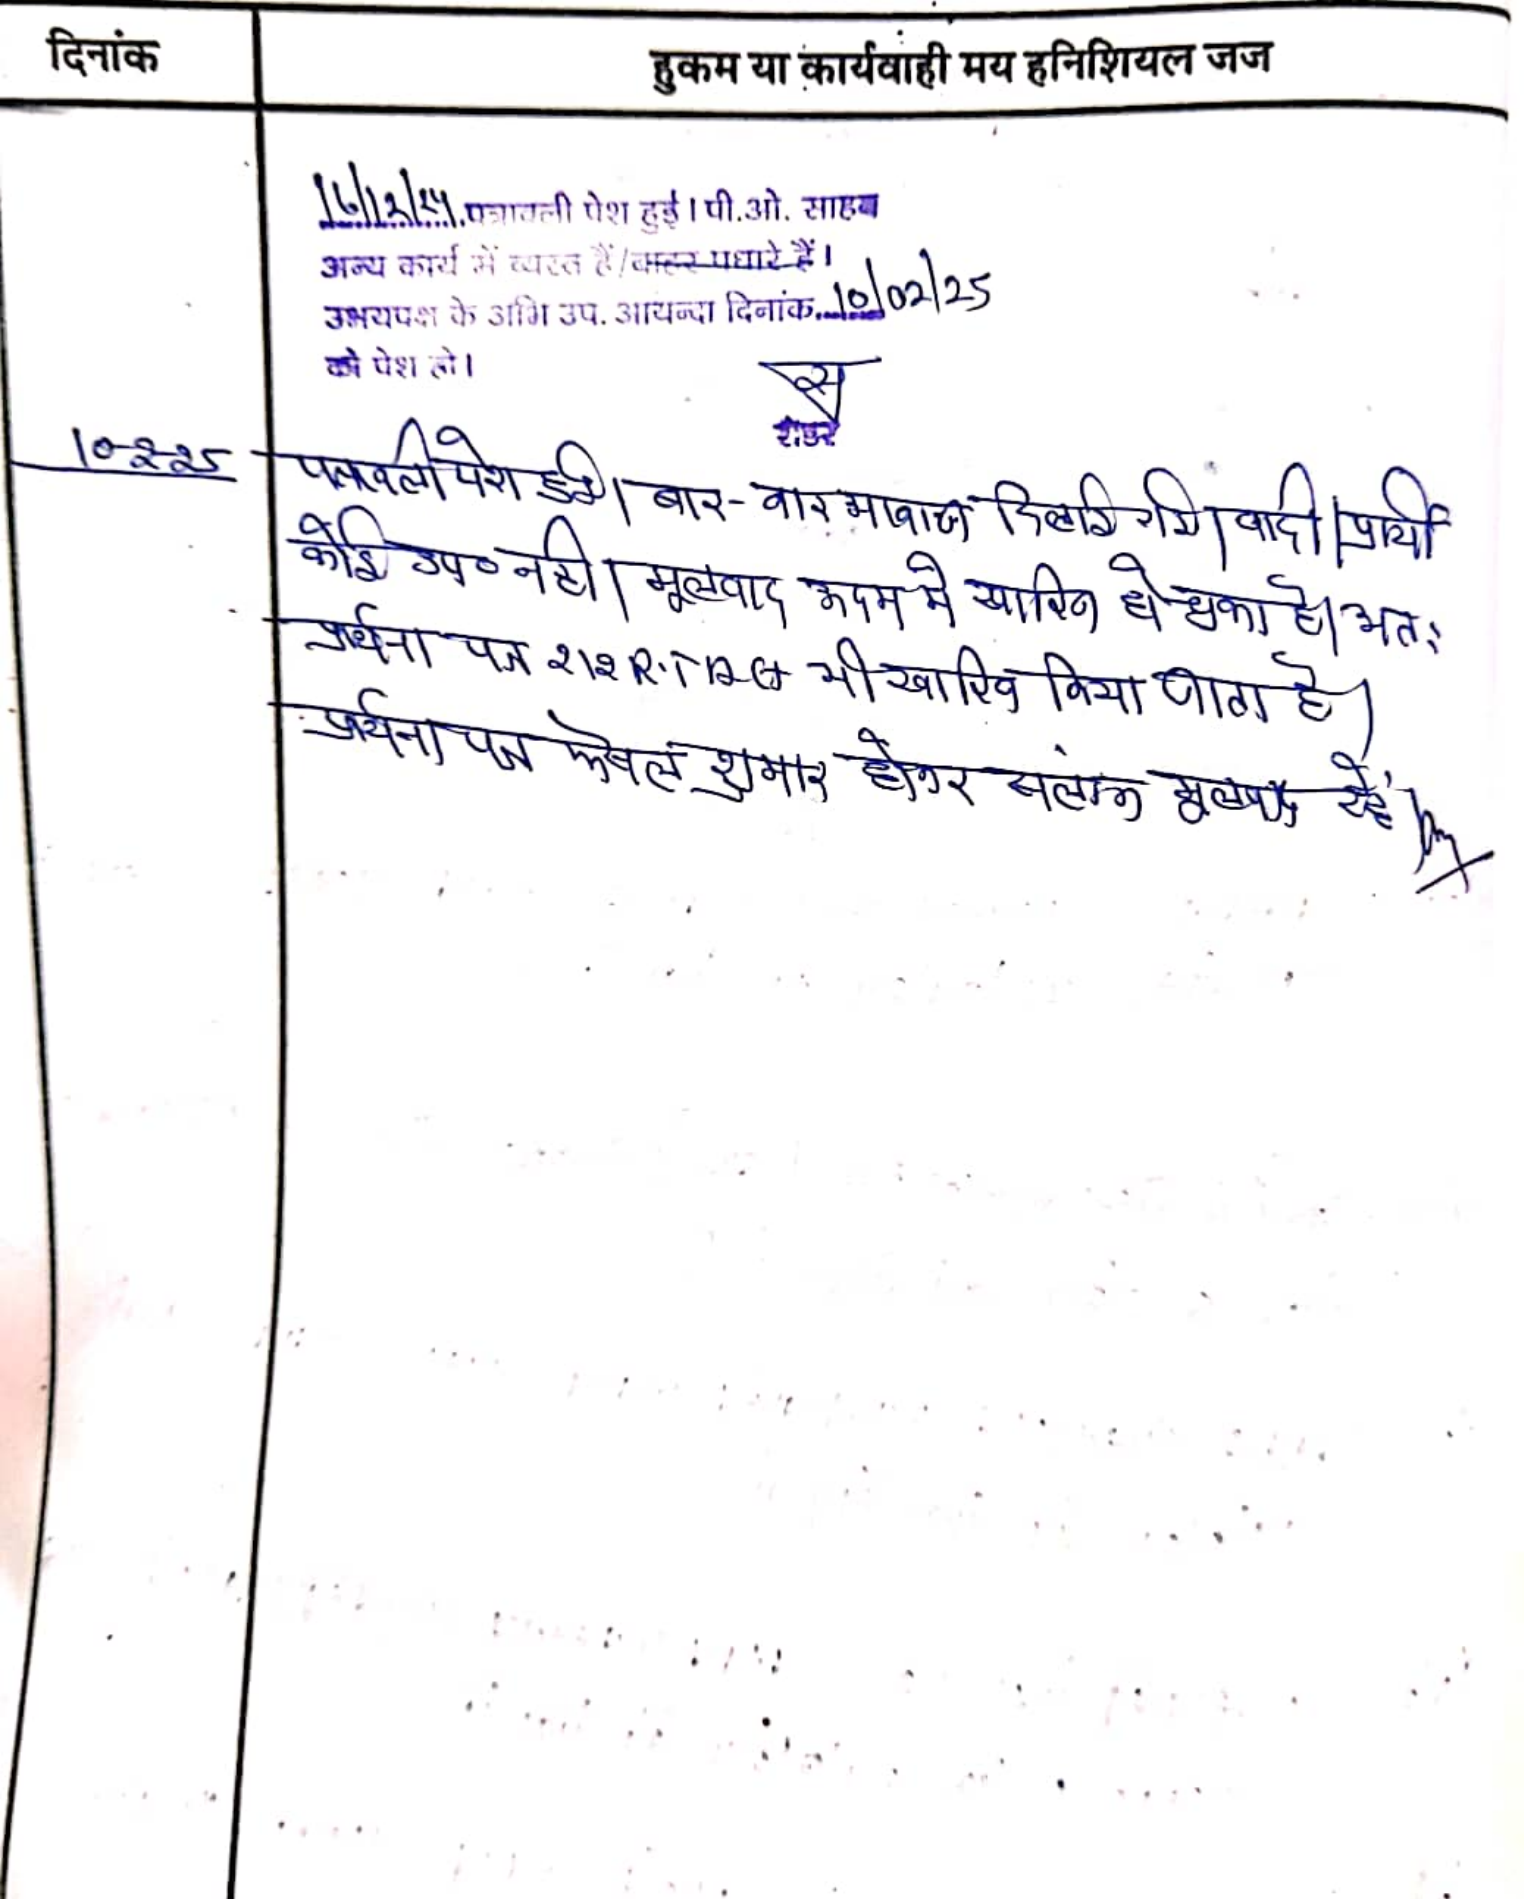 दिनांक
हुकम या कार्यवाही मय हनिशियल जज
16/12/24 पत्रावली पेश हुई। पी.ओ. साहब
अन्य कार्य में व्यस्त हैं/बाहर पधारे हैं।
उभयपक्ष के अभि उप. आयन्दा दिनांक 10/02/25
को पेश हो।
रीडर
10-2-25
पत्रावली पेश हुई। बार-बार आवाज दिलाई गई। वादी/प्रार्थी
कोई उप० नही। मूलवाद अदम मे खारिज हो चुका है। अतः
प्रार्थना पत्र 212 R.T.A भी खारिज किया जाता है।
प्रार्थना पत्र फैसल शुमार होकर संलग्न मूलवाद रहे।